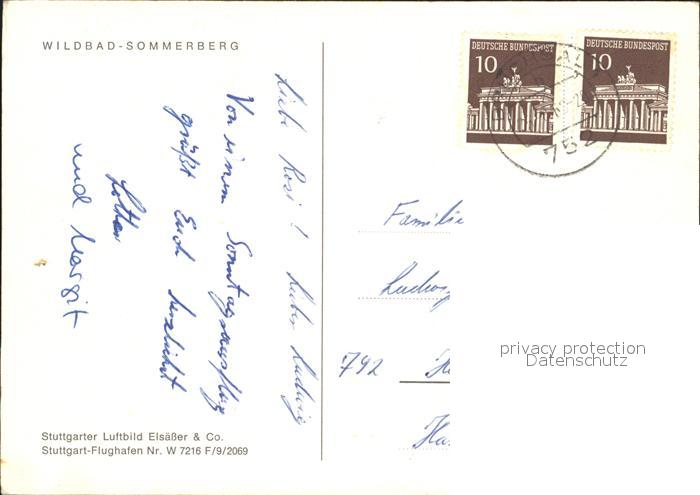 WILDBAD-SOMMERBERG
Liebe Rosi! Lieber Ludwig
Von einem Sonntagsausflug
grüßt Euch herzlichst
Lothar
und Margit
Stuttgarter Luftbild Elsäßer & Co.
Stuttgart-Flughafen Nr. W 7216 F/9/2069
DEUTSCHE BUNDESPOST
10
DEUTSCHE BUNDESPOST
10
752
Familie
Ludwig
792
privacy protection
Datenschutz